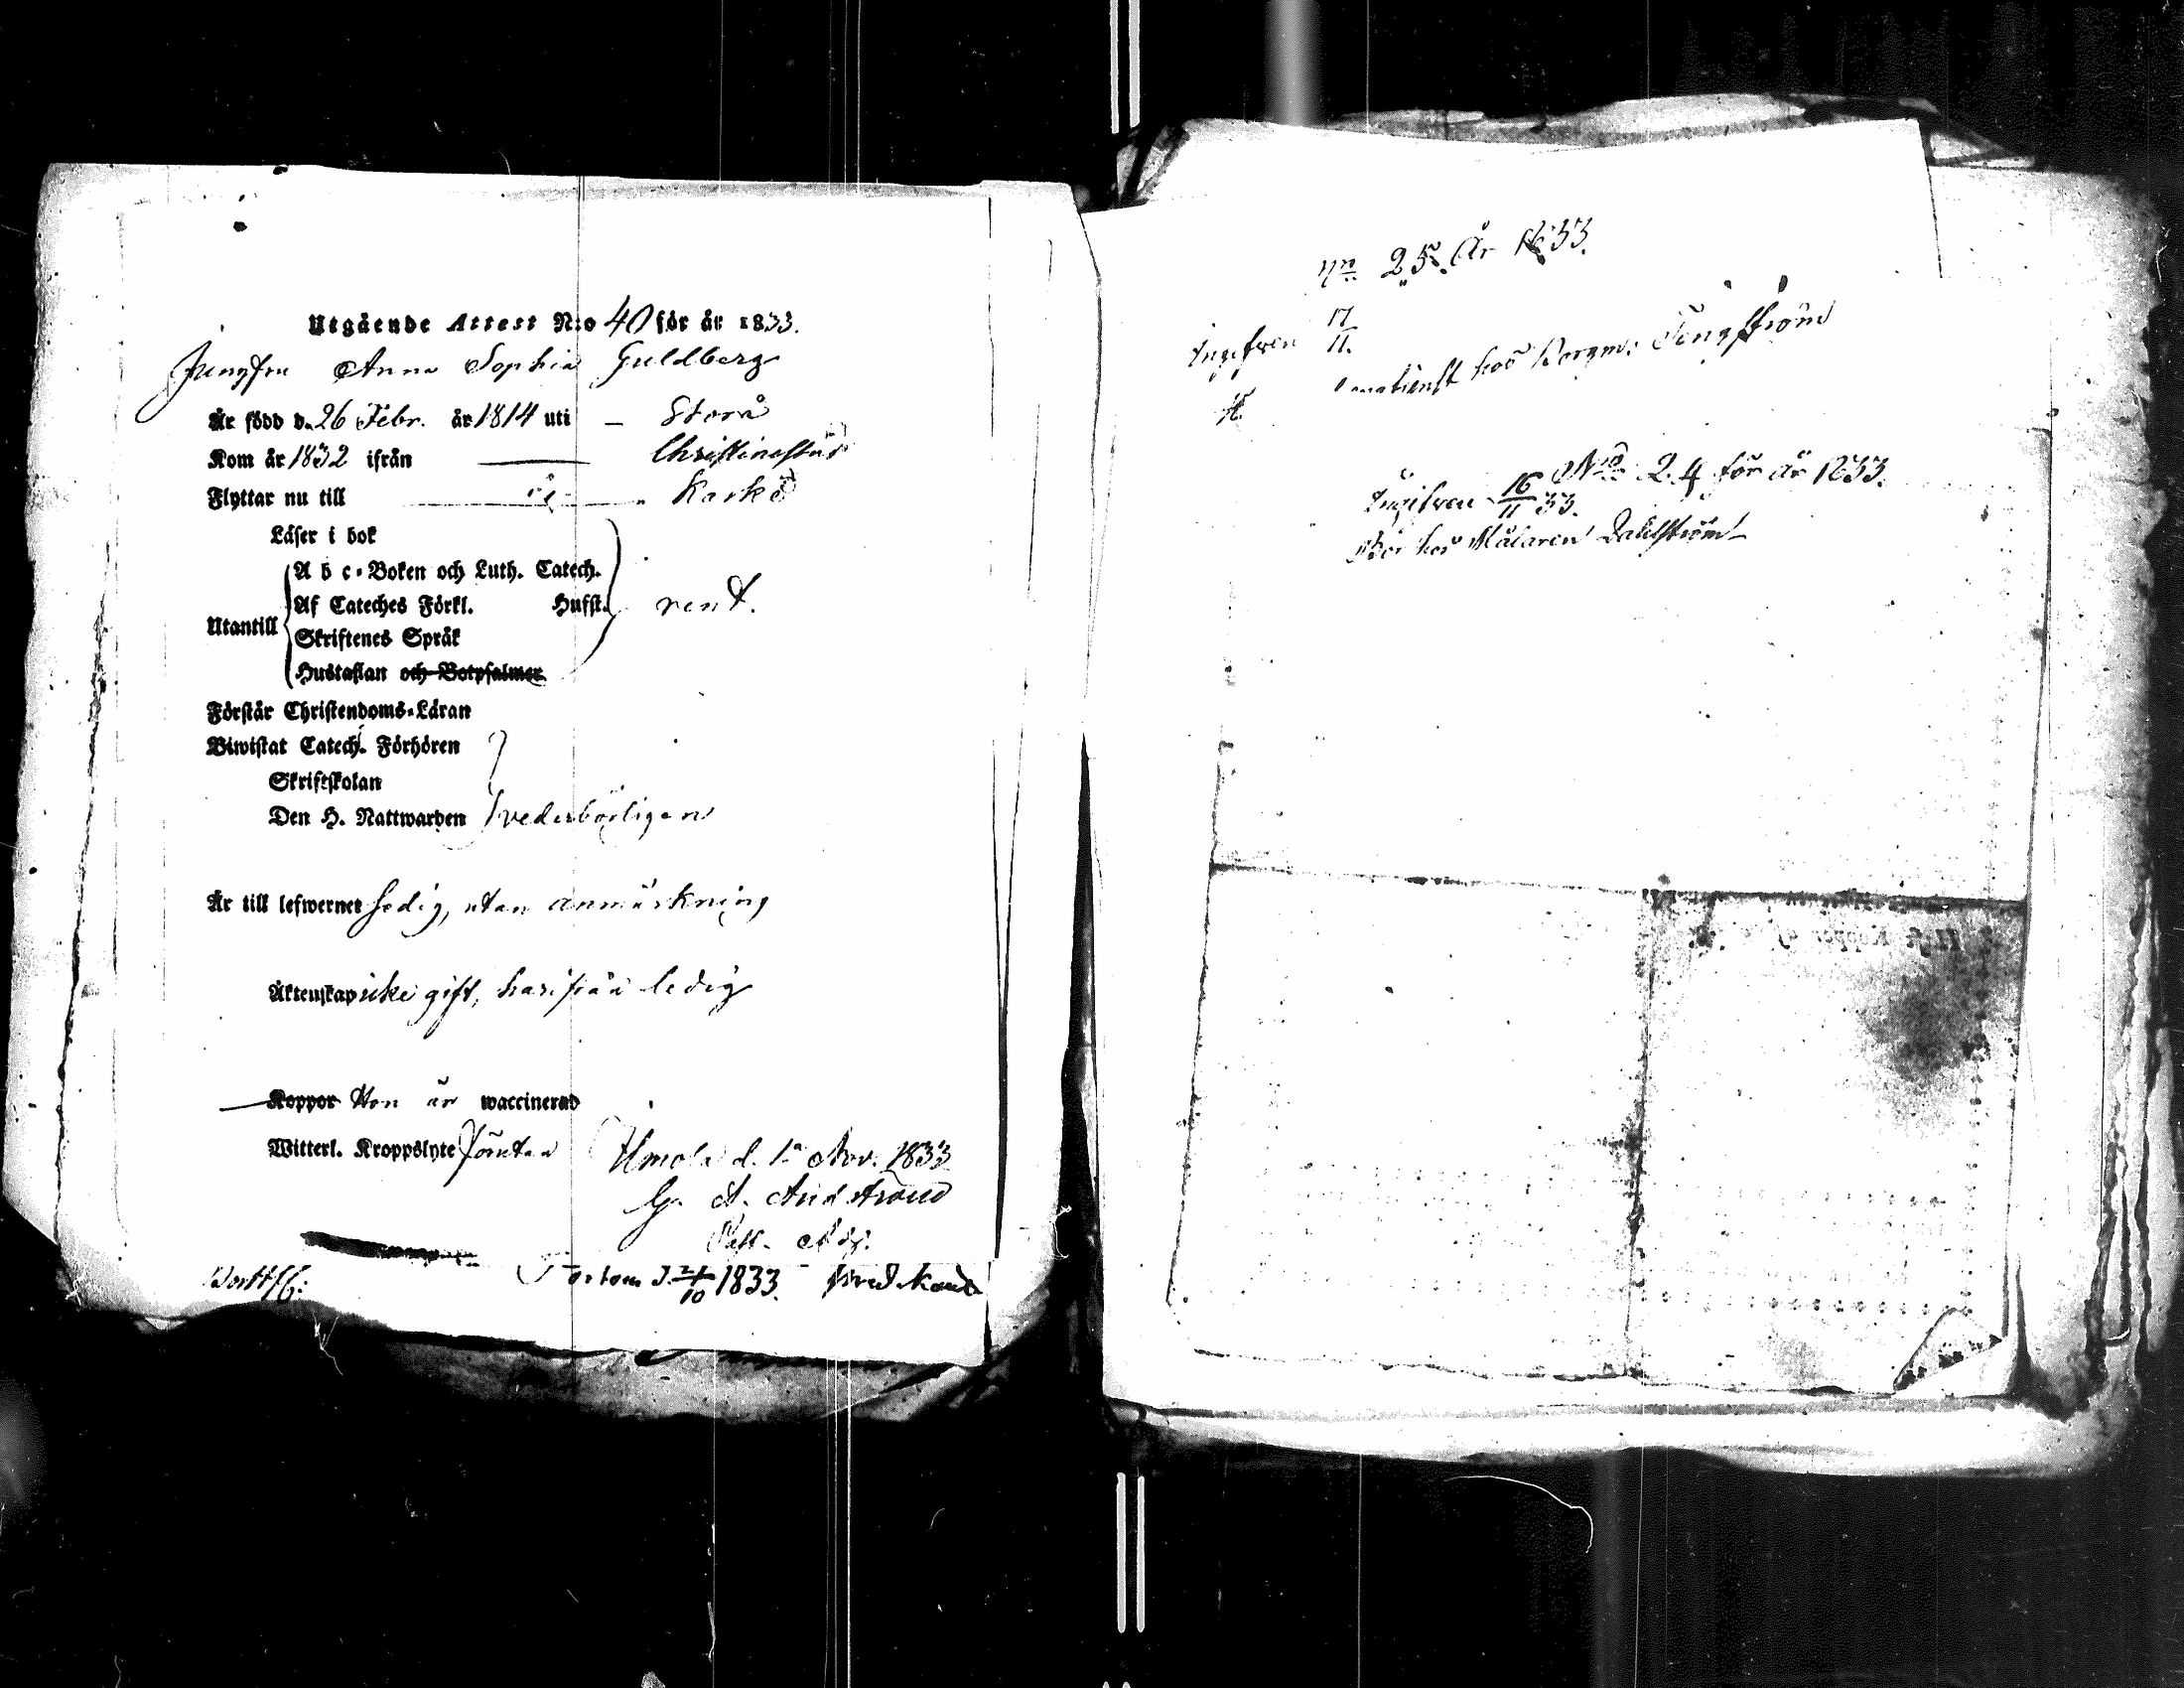 Utgående Attest N:o 40 för år 1833.
Jungfru Anna Sophia Guldberg
Är född d. 26 Febr. år 1814 uti — Storå
Kom år 1832 ifrån — Christinæstad
Flyttar nu till Kaskö
Läser i bok
A b c-Boken och Luth. Catech.
Af Cateches Förkl. Husst. rent.
Utantill
Skriftenes Språk
Hustaflan och Botpsalmer
Förstår Christendoms-Läran
Biwistat Catech. Förhören
Skriftskolan
Den H. Nattwarden vederbörligen
Är till lefwernet sedig, utan anmärkning
Äktenskap icke gift, härifrån ledig
Koppor Hon är waccinerad
Witterl. Kroppslyte förutan
d. 1a Nov. 1833
G. A.
Past. Adj.
1833.
No 25. År 1833.
Ingifven 17/11.
hos Borgm:
No 24 för år 1833.
Ingifven 16/11 33.
Bor hos Målaren Dahlström